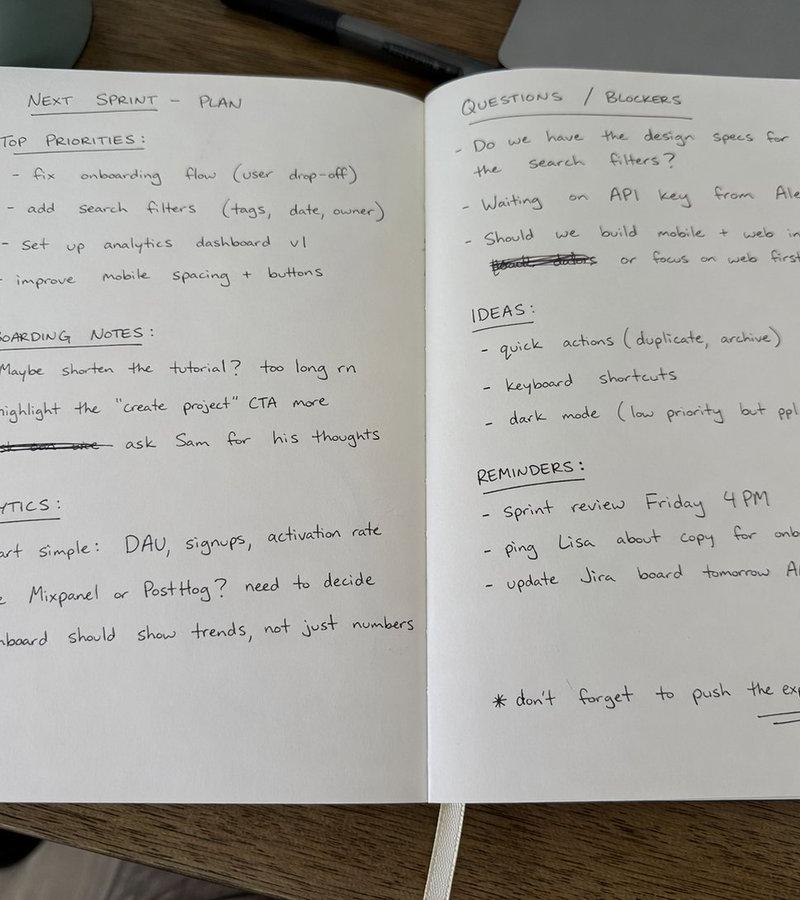 NEXT SPRINT - PLAN
TOP PRIORITIES:
- fix onboarding flow (user drop-off)
- add search filters (tags, date, owner)
- set up analytics dashboard v1
- improve mobile spacing + buttons
OARDING NOTES:
Maybe shorten the tutorial? too long rn
highlight the "create project" CTA more
ask Sam for his thoughts
YTICS:
art simple: DAU, signups, activation rate
Mixpanel or PostHog? need to decide
hboard should show trends, not just numbers
QUESTIONS / BLOCKERS
- Do we have the design specs for
the search filters?
- Waiting on API key from Ale
- Should we build mobile + web in
or focus on web first
IDEAS:
- quick actions (duplicate, archive)
- keyboard shortcuts
- dark mode (low priority but ppl
REMINDERS:
- sprint review Friday 4 PM
- ping Lisa about copy for onb
- update Jira board tomorrow A
* don't forget to push the exp